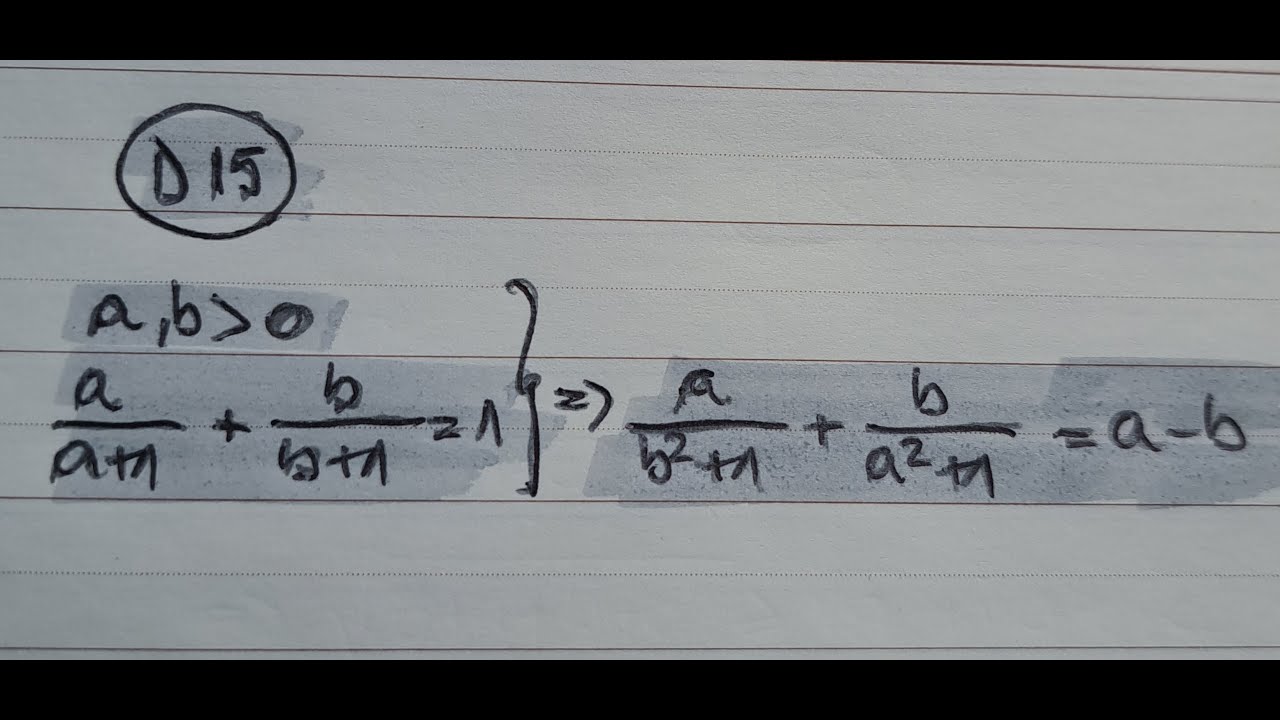 D15
a, b > 0
a/(a+1) + b/(b+1) = 1 } => a/(b²+1) + b/(a²+1) = a - b